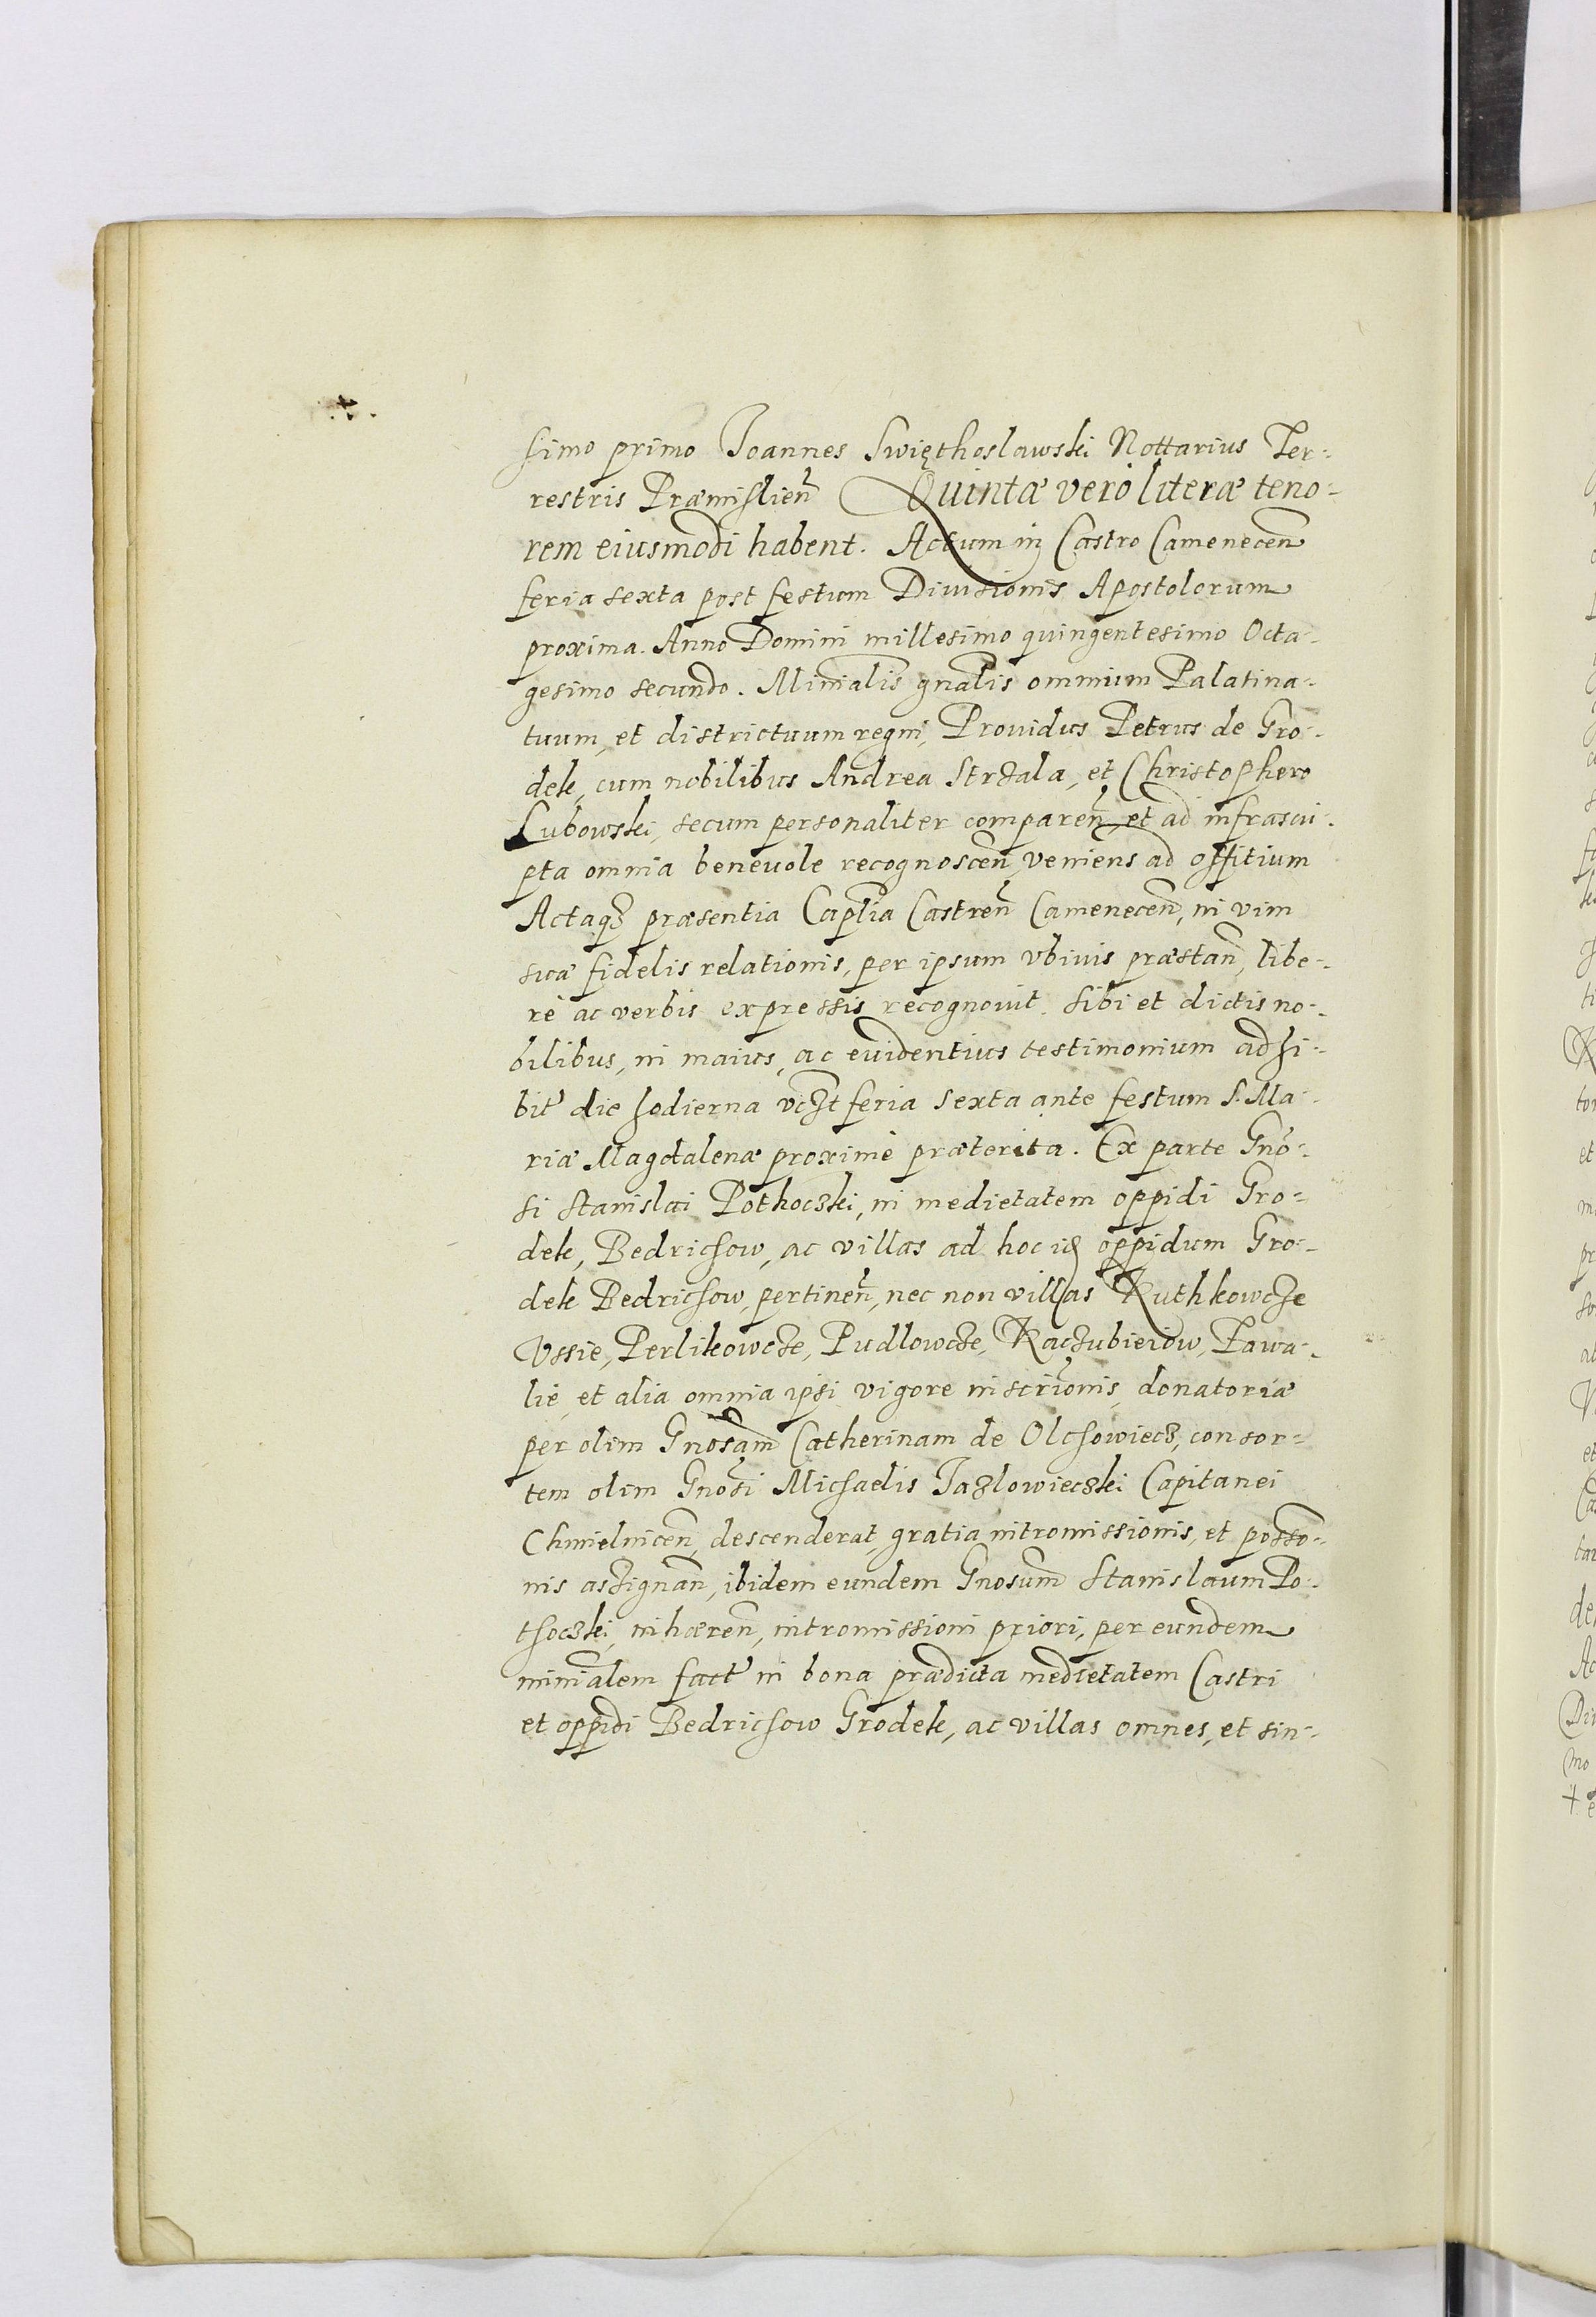 simo primo Joannes Swięthoslawski Nottarius Ter-
restris Præmislien̄ Quintæ vero literæ teno-
rem eiusmodi habent. Actum in Castro Camenecen̄
feria sexta post festum Diuisionis Apostolorum
proxima. Anno Domini millesimo quingentesimo Octa-
gesimo secundo. Minialis gnalis omnium Palatina-
tuum, et districtuum regni, Prouidus Petrus de Gro-
dek, cum nobilibus Andrea Strzala, et Christophero
Lubowski, secum personaliter comparen̄, et ad infrascri-
pta omnia beneuole recognoscen̄, veniens ad offitium
Actaq3 præsentia Caplia Castren̄ Camenecen̄, in vim
suæ fidelis relationis, per ipsum vbiuis præstan̄, libe-
rè ac verbis expressis recognouit. Sibi et dictis no-
bilibus, in maius, ac euidentius testimonium adhi-
bit die hodierna vczt feria sexta ante festum S. Ma-
riæ Magdalenæ proximè præterita. Ex parte Gno-
si Stanislai Pothoczki, in medietatem oppidi Gro-
dek, Bedrichow, ac villas ad hoc id oppidum Gro-
dek Bedrichow, pertinen̄, nec non villas Ruthkowcze
Vssie, Perlikowcze, Pudlowcze, Raczubieiow, Tawa-
lie, et alia omnia ipsi vigore inscrionis, donatoriæ
per olim Gnosam Catherinam de Olchowiecz, consor-
tem olim Gnosi Michaelis Jazlowieczki Capitanei
Chmielnicen̄, descenderat, gratia intromissionis, et posso-
nis assignan̄, ibidem eundem Gnosum Stanislaum Po-
thoczki, inhæren̄, intromissioni priori, per eundem
minialem fact in bona prædicta medietatem Castri
et oppidi Bedrichow Grodek, ac villas omnes, et sin-